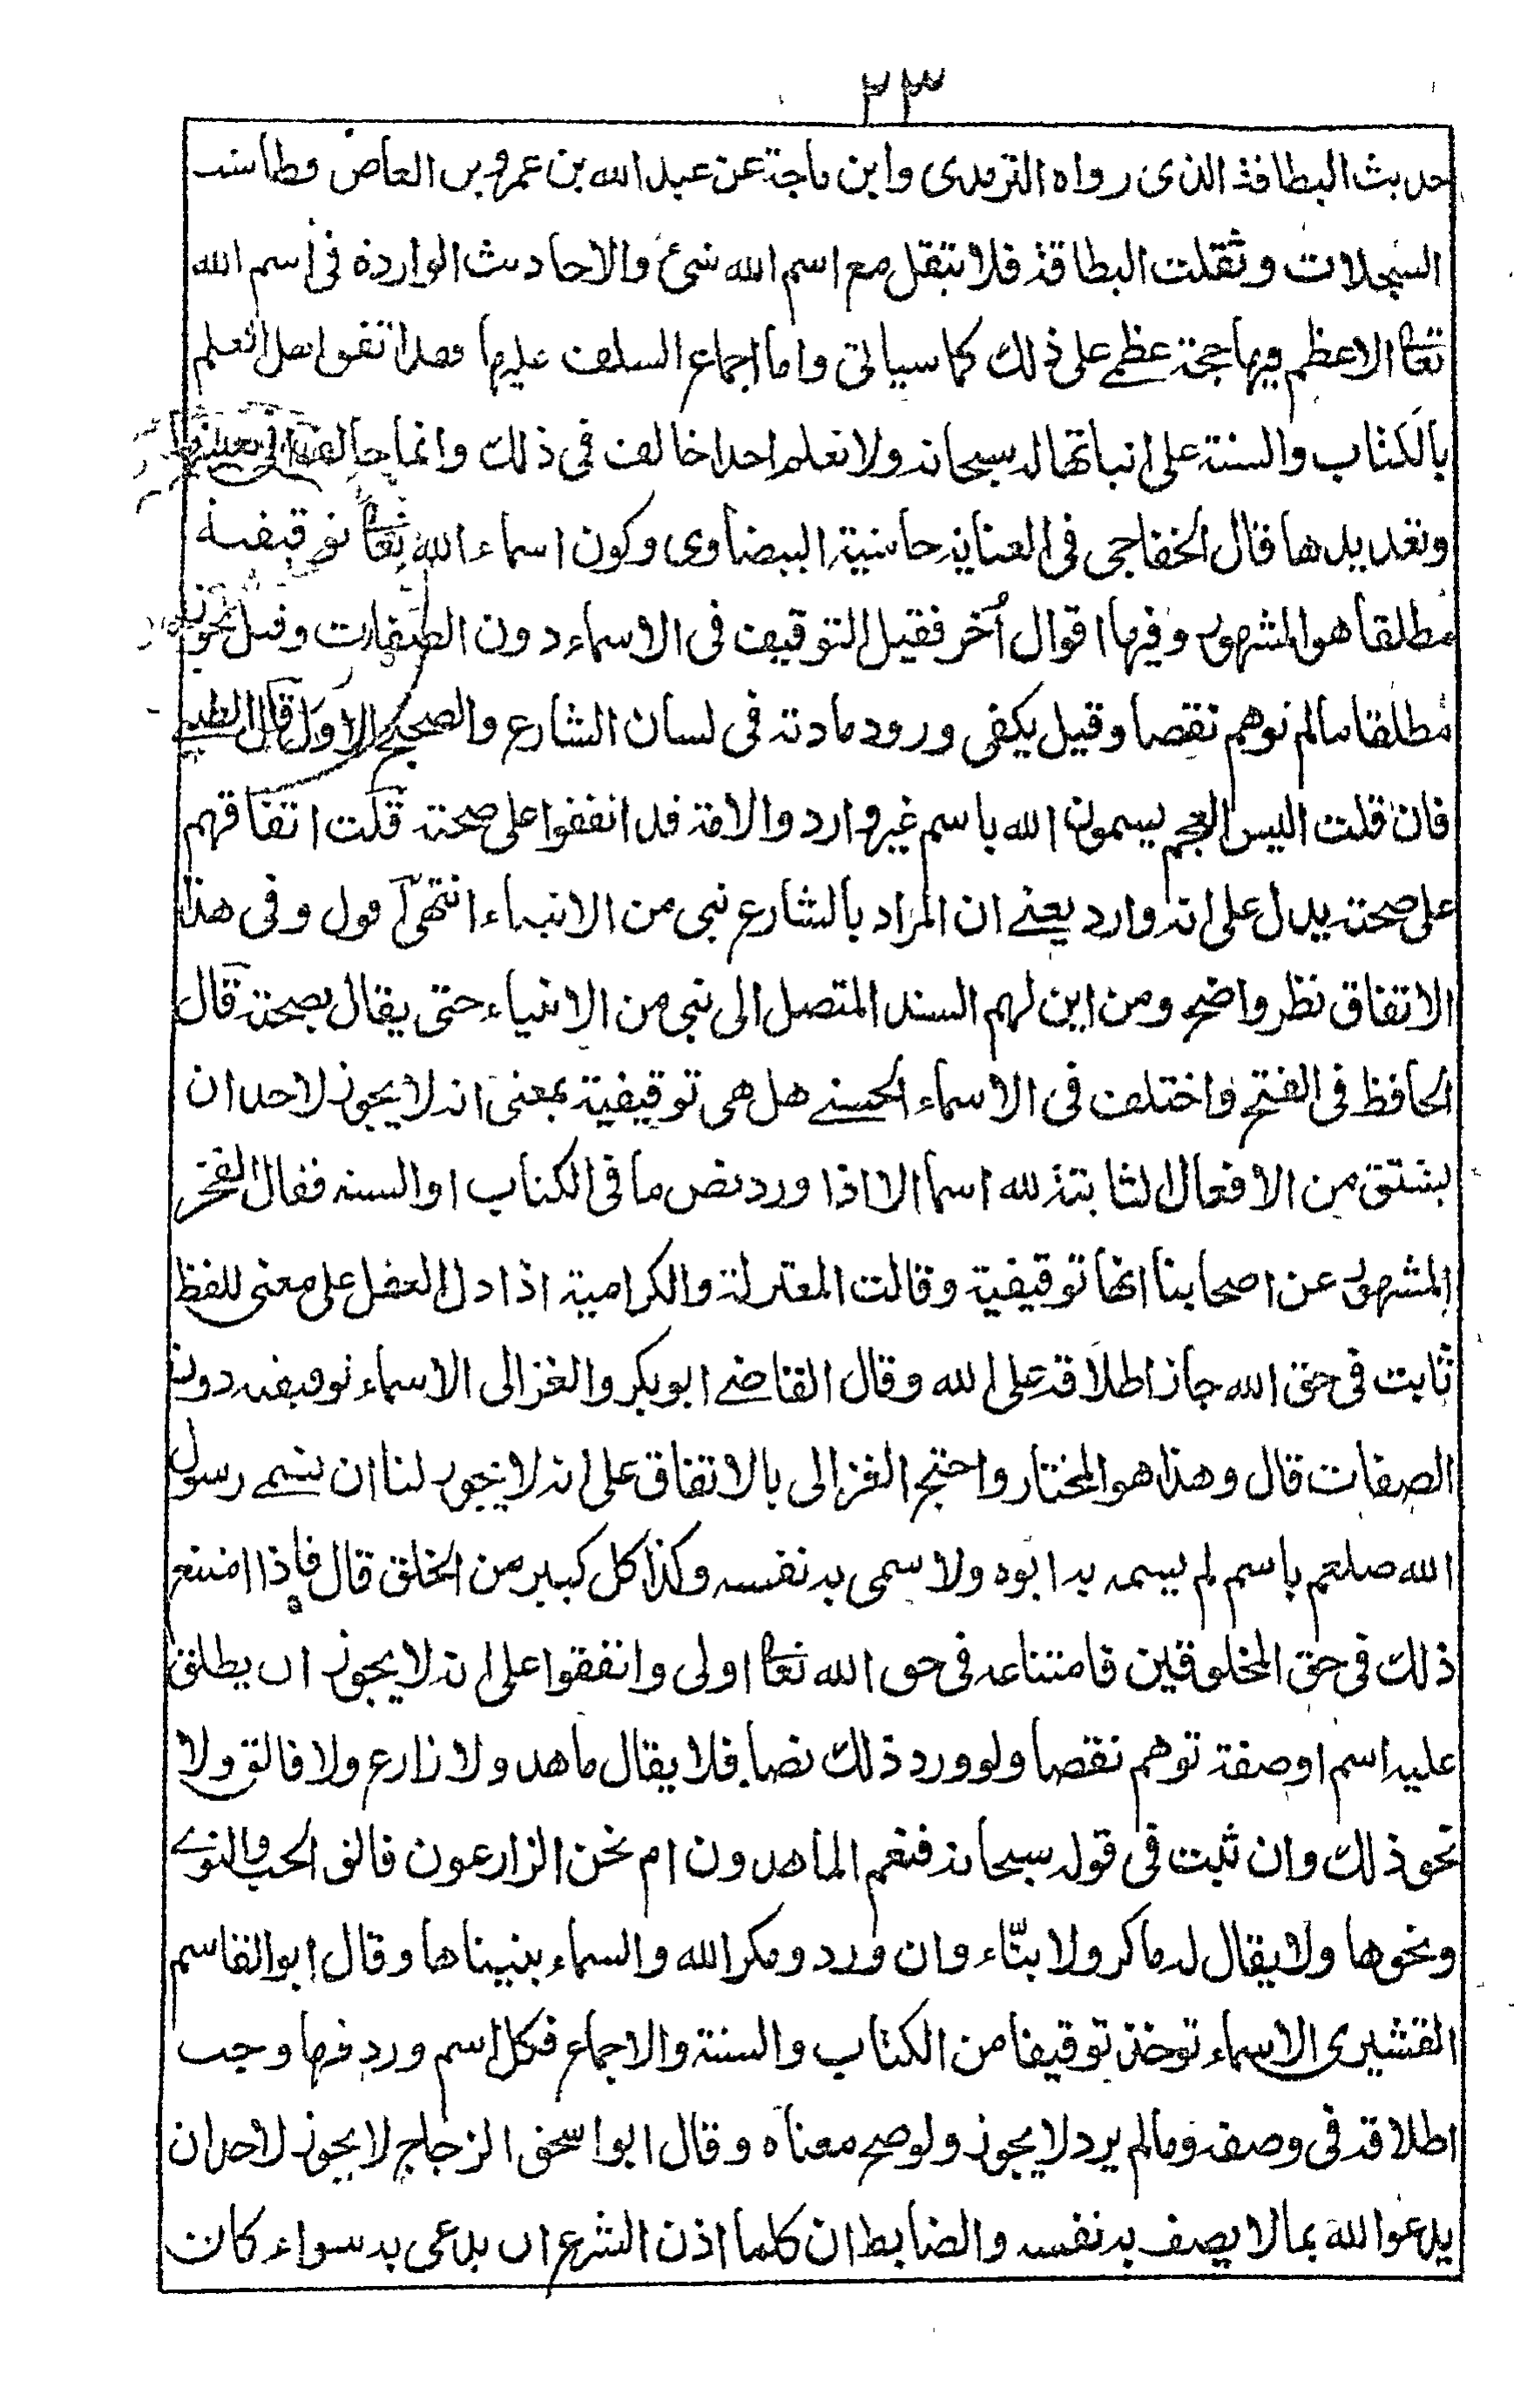 ٢٣
حديث البطاقة الذى رواه الترمذى وابن ماجة عن عبد الله بن عمرو بن العاص وطاشت
السجلات وثقلت البطاقة فلا يثقل مع اسم الله شئ والاحاديث الواردة فى اسم الله
تعالى الاعظم فيها حجة عظمے على ذلك كما سياتى واما اجماع السلف عليها فقد اتفق اهل العلم
بالكتاب والسنة على اثباتها له سبحانه ولا نعلم احدا خالف فى ذلك وانما خالف فى تعيينها
وتعديدها قال الخفاجى فى العناية حاشية البيضاوى وكون اسماء الله تعالى توقيفية
مطلقا هو المشهور وفيها اقوال أخر فقيل التوقيف فى الاسماء دون الصفات وقيل يجوز
مطلقا مالم توهم نقصا وقيل يكفى ورود مادته فى لسان الشارع والصحيح الاول قال الطيبے
فان قلت اليس العجم يسمون الله باسم غير وارد والامة قد اتفقوا على صحته قلت اتفاقهم
على صحته يدل على انه وارد يعنے ان المراد بالشارع نبى من الانبياء انتهى اقول وفى هذا
الاتفاق نظر واضح ومن اين لهم السند المتصل الى نبى من الانبياء حتى يقال بصحته قال
الحافظ فى الفتح واختلف فى الاسماء الحسنے هل هى توقيفية بمعنى انه لا يجوز لاحد ان
يشتق من الافعال الثابتة لله اسما الا اذا ورد نص ما فى الكتاب او السنه فقال الفخر
المشهور عن اصحابنا انها توقيفية وقالت المعتزلة والكرامية اذا دل العقل على معنى للفظ
ثابت فى حق الله جاز اطلاقه على الله وقال القاضے ابو بكر والغزالى الاسماء توقيفيه دون
الصفات قال وهذا هو المختار واحتج الغزالى بالاتفاق على انه لا يجوز لنا ان نسمے رسول
الله صلعم باسم لم يسمه به ابوه ولا سمى به نفسه وكذا كل كبير من الخلق قال فاذا امتنع
ذلك فى حق المخلوقين فامتناعه فى حق الله تعالى اولى واتفقوا على انه لا يجوز ان يطلق
عليه اسم او صفة توهم نقصا ولو ورد ذلك نصا فلا يقال ماهد ولا زارع ولا فالق ولا
نحو ذلك وان ثبت فى قوله سبحانه فنعم الماهدون ام نحن الزارعون فالق الحب والنوے
ونحوها ولا يقال له ماكر ولا بنّاء وان ورد ومكر الله والسماء بنيناها وقال ابو القاسم
القشيرى الاسماء توخذ توقيفا من الكتاب والسنة والاجماع فكل اسم ورد فيها وجب
اطلاقه فى وصفه ومالم يرد لا يجوز ولو صح معناه وقال ابو اسحق الزجاج لا يجوز لاحد ان
يدعو الله بما لا يصف به نفسه والضابط ان كلما اذن الشرع ان يدعى به سواء كان